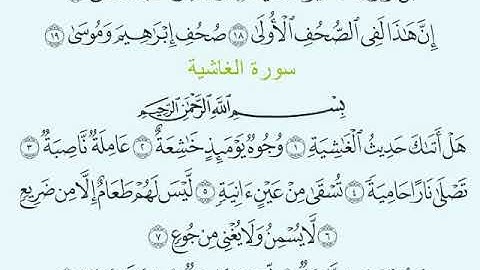 إِنَّ هَٰذَا لَفِي ٱلصُّحُفِ ٱلْأُولَىٰ ١٨ صُحُفِ إِبْرَٰهِيمَ وَمُوسَىٰ ١٩
سورة الغاشية
بِسْمِ ٱللَّهِ ٱلرَّحْمَٰنِ ٱلرَّحِيمِ
هَلْ أَتَىٰكَ حَدِيثُ ٱلْغَٰشِيَةِ ١ وُجُوهٌ يَوْمَئِذٍ خَٰشِعَةٌ ٢ عَامِلَةٌ نَّاصِبَةٌ ٣
تَصْلَىٰ نَارًا حَامِيَةً ٤ تُسْقَىٰ مِنْ عَيْنٍ ءَانِيَةٍ ٥ لَّيْسَ لَهُمْ طَعَامٌ إِلَّا مِن ضَرِيعٍ
٦ لَّا يُسْمِنُ وَلَا يُغْنِي مِن جُوعٍ ٧